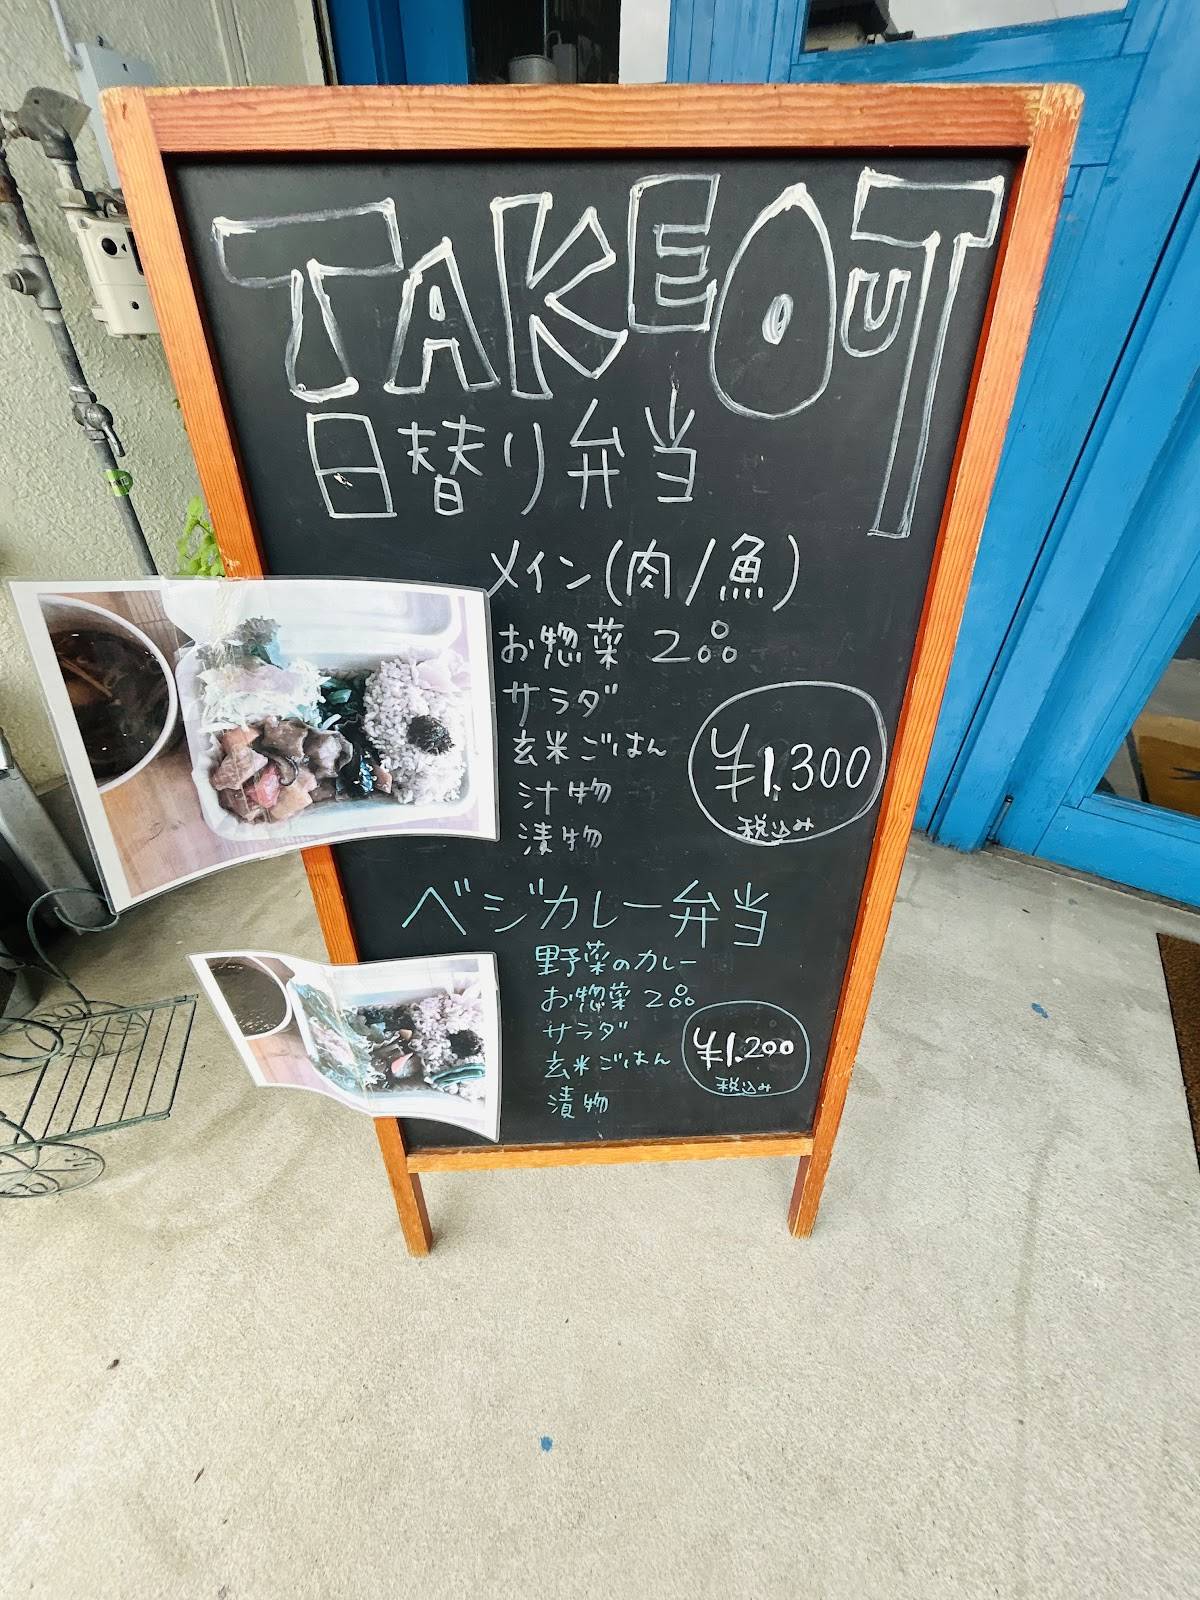 TAKEOUT
日替り弁当
メイン(肉/魚)
お惣菜 2品
サラダ
玄米ごはん
汁物
漬物
¥1.300
税込み
ベジカレー弁当
野菜のカレー
お惣菜 2品
サラダ
玄米ごはん
漬物
¥1.200
税込み